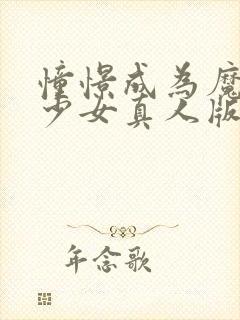 憧憬成為魔
少女真人版
年念歌